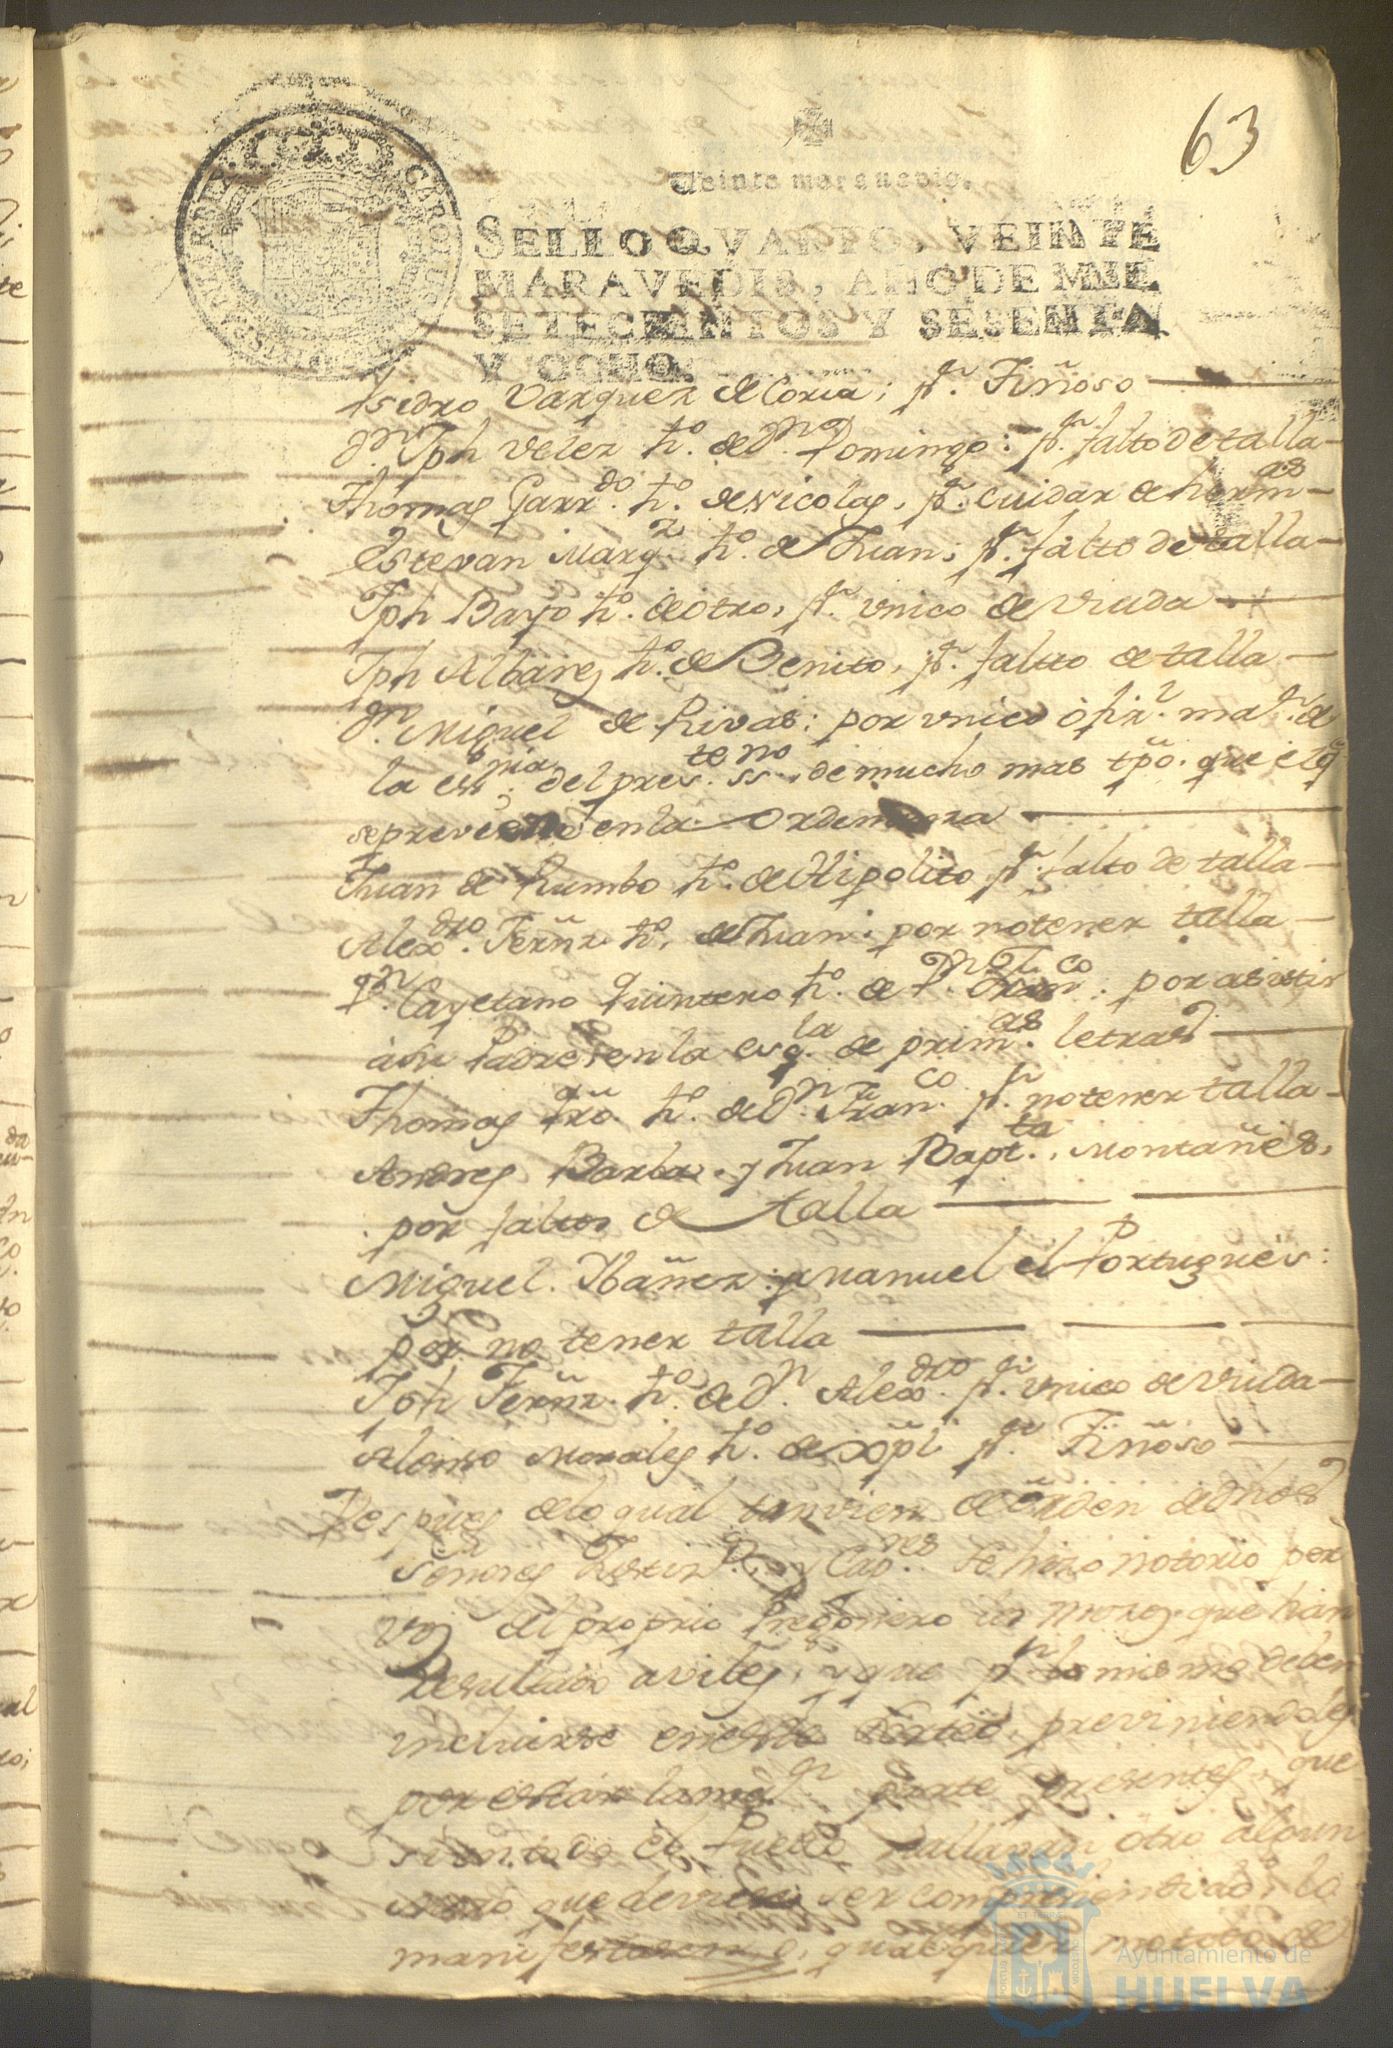 63
Veinte maravedis.
SELLO QVARTO, VEINTE
MARAVEDIS, AÑO DE MIL
SETECIENTOS Y SESENTA
Y OCHO.
Isidro Vazquez de Coria; pr. Tiñoso
Dn. Jph Velez ho. de Dn. Domingo: pr. falto de talla
Thomas Garrdo. ho. de Nicolas, pr. cuidar de hermas
Estevan Marqz. ho. de Juan; pr. falto de talla
Jph Bayo ho. de otro, pr. vnico de Viuda
Jph Albarez ho. de Benito, pr. falto de talla
Dn. Miguel de Rivas: por vnico ofizl. maor. de
la essnia. del preste. ssno. de mucho mas tpõ. que el q̃
se previene en la Ordenanza
Juan de Rumbo ho. de Hipolito pr. falto de talla
Alexdro. Fernz ho. de Juan: por no tener talla
Dn. Cayetano Quintero ho. de Dn. Franco: por asistir
à su Padre en la esqla. de primas. letras
Thomas ho. de Dn. Franco. pr. no tener talla
Andres Barba y Juan Bapta. Montañes,
por faltos de talla
Miguel Ybañez: y Manuel el Portugues:
por no tener talla
Jph Fernz ho. de Dn. Alexdro. pr. vnico de Viuda
Alonso Morales ho. de Xpl pr. Tiñoso
Despues de lo qual tanvien de orden de dhos
Señores Justiza. y Capres se hizo notorio por
voz del proprio Pregonero los mozos que han
resultado aviles, y que pr. lo mismo deben
incluirse en este sorteo, previniendoles
por estar la maor. parte presentes, que
si en todo el Pueblo hallaran otro algun
mozo que deviera ser comprehendido, lo
manifestasen qualquier
Ayuntamiento de
HUELVA